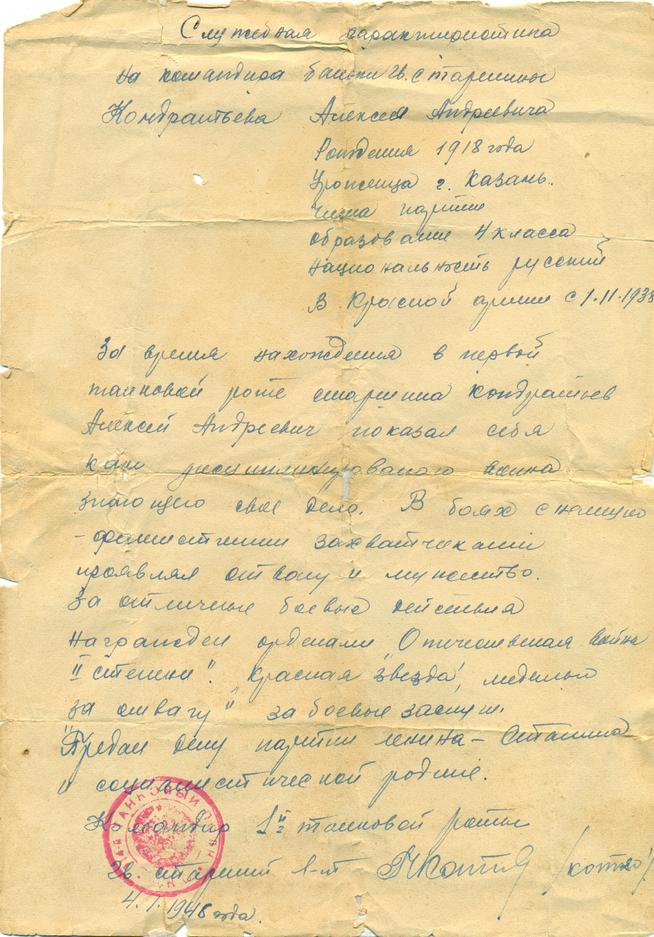 Служебная характеристика
на командира башни гв. старшины
Кондратьева Алексея Андреевича
Рождения 1918 года
Уроженца г. Казань.
члена партии
образование 4 класса
национальность русский
В Красной армии с 1.11.1938
За время нахождения в первой
танковой роте старшина Кондратьев
Алексей Андреевич показал себя
как воина
знающего свое дело. В боях с немецко
-фашистскими захватчиками
проявлял отвагу и мужество.
За отличные боевые действия
награжден орденами „Отечественная война
II степени". Красная звезда, медалью
за отвагу" за боевые заслуги.
Предан делу партии Ленина – Сталина
и социалистической родине.
Командир 1й танковой роты
Гв. старший л-т /Котов/
4.1.1946 года.